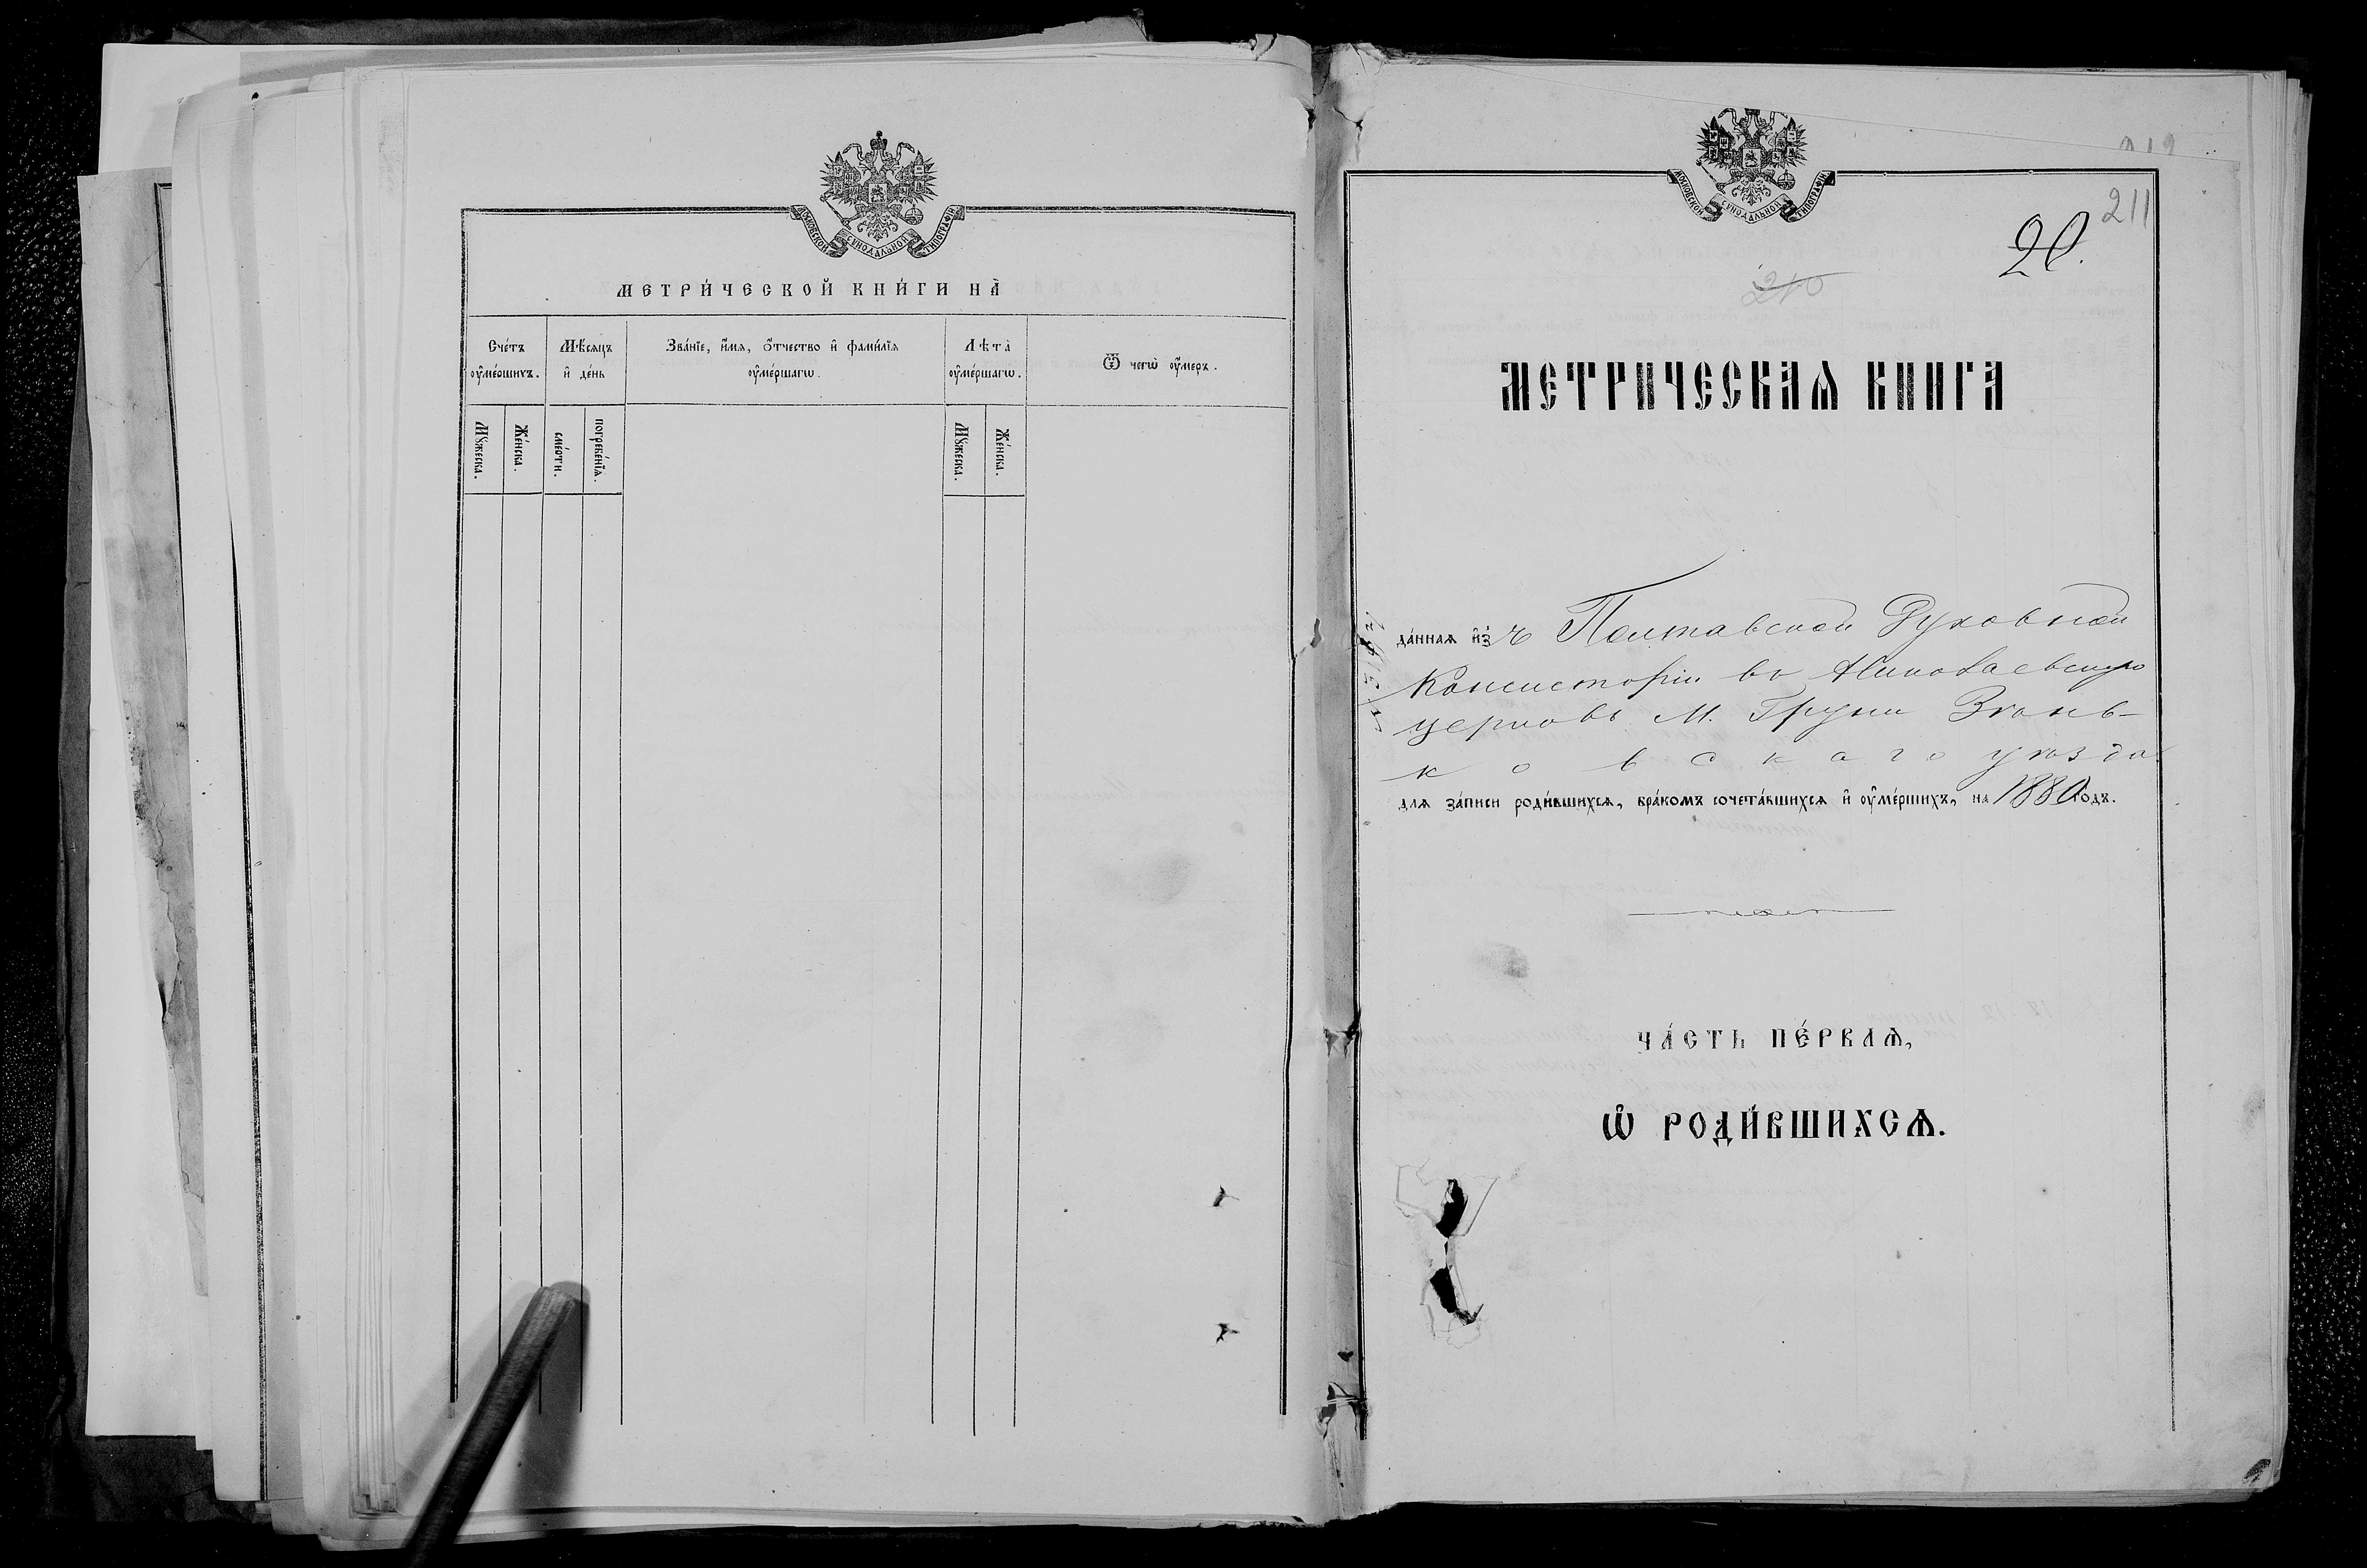 МОСКОВСКОЙ СУНОДАЛЬНОЙ ТИПОГРАФІИ
МЕТРИ́ЧЕСКОЙ КНИ́ГИ НА̀
Сче́тъ оу҆ме́ршихъ.
Мѣ́сѧцъ и҆ де́нь
Зва́нїе, и҆́мѧ, ѻ҆́тчество и҆ фами́лїѧ оу҆ме́ршагѡ.
Лѣ́та оу҆ме́ршагѡ.
Ѿ чегѡ̀ оу҆́меръ.
Мꙋ́жеска.
Же́нска.
сме́рти.
погребе́нїѧ.
Мꙋ́жеска.
Же́нска.
МОСКОВСКОЙ СУНОДАЛЬНОЙ ТИПОГРАФІИ
211
20.
210
МЕТРИЧЕСКАѦ КНИГА
да́ннаѧ и҆з̾ъ Полтавской Духовной
Консисторіи въ Николаевскую
церковь М. Груни Зѣнь-
ковскаго уѣзда
для за́писи роди́вшихсѧ, бра́комъ сочета́вшихсѧ и҆ оу҆ме́ршихъ, на 1880 го́дъ.
ЧА́СТЬ ПЕ́РВАѦ,
Ѡ҆ РОДИ́ВШИХСѦ.